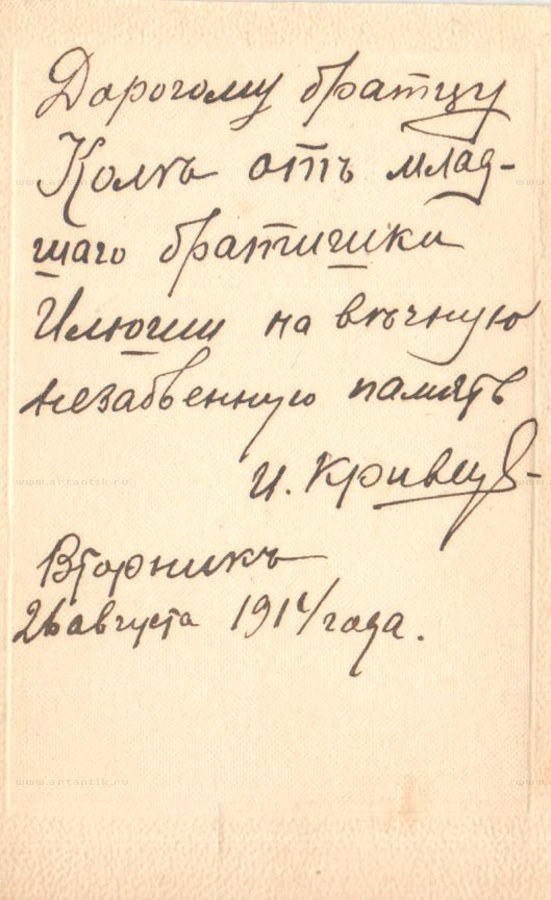 Дорогому братцу
Колѣ отъ млад-
шаго братишки
Илюши на вѣчную
незабвенную память
И. Кривцов
Вторникъ
26 августа 1914 года.
www.artantik.ru